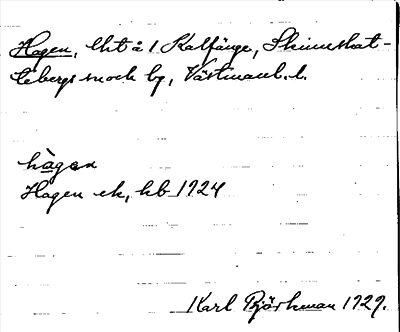 Hagen, lht å 1 Kalfänge, Skinnskat-
tebergs snock bg, Västmanl. l.
hagen
Hagen ek, kb 1724
Karl Björkman 1929.